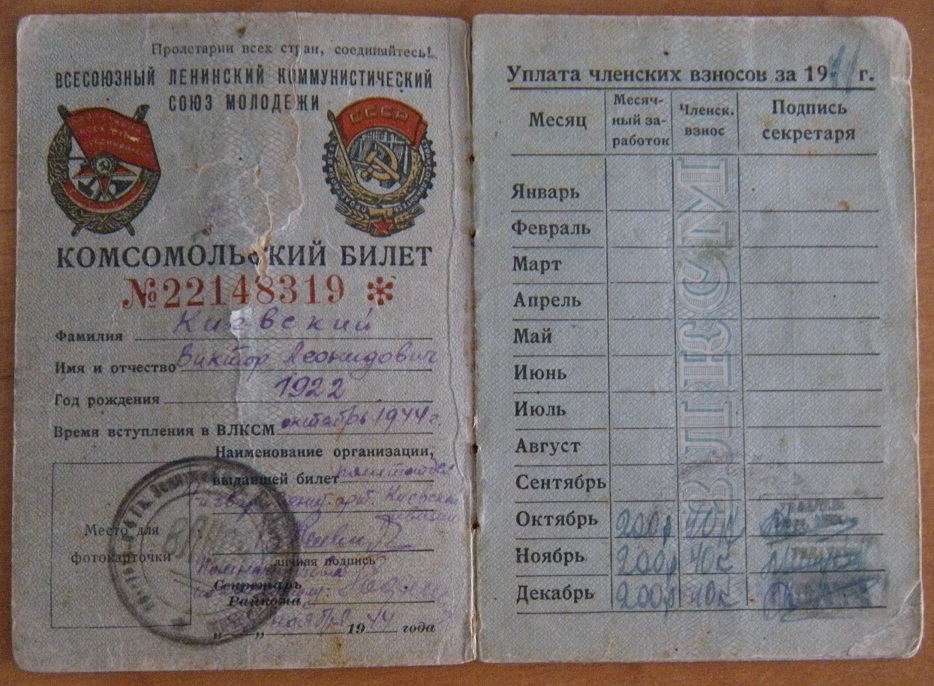 Пролетарии всех стран, соединяйтесь!
ВСЕСОЮЗНЫЙ ЛЕНИНСКИЙ КОММУНИСТИЧЕСКИЙ
СОЮЗ МОЛОДЕЖИ
СССР
КОМСОМОЛЬСКИЙ БИЛЕТ
№22148319 *
Фамилия Киевский
Имя и отчество Виктор Леонидович
Год рождения 1922
Время вступления в ВЛКСМ октябрь 1944 г.
Наименование организации,
выдавшей билет политотдел
дивизии
Место для
фотокарточки
личная подпись
Секретарь
Райкома
„ “ ноября 1944 года
Уплата членских взносов за 1944 г.
Месяц Месяч-ный за-работок Членск. взнос Подпись секретаря
ВЛКСМ
Январь
Февраль
Март
Апрель
Май
Июнь
Июль
Август
Сентябрь
Октябрь 200р 40к
Ноябрь 200р 40к
Декабрь 200р 40к